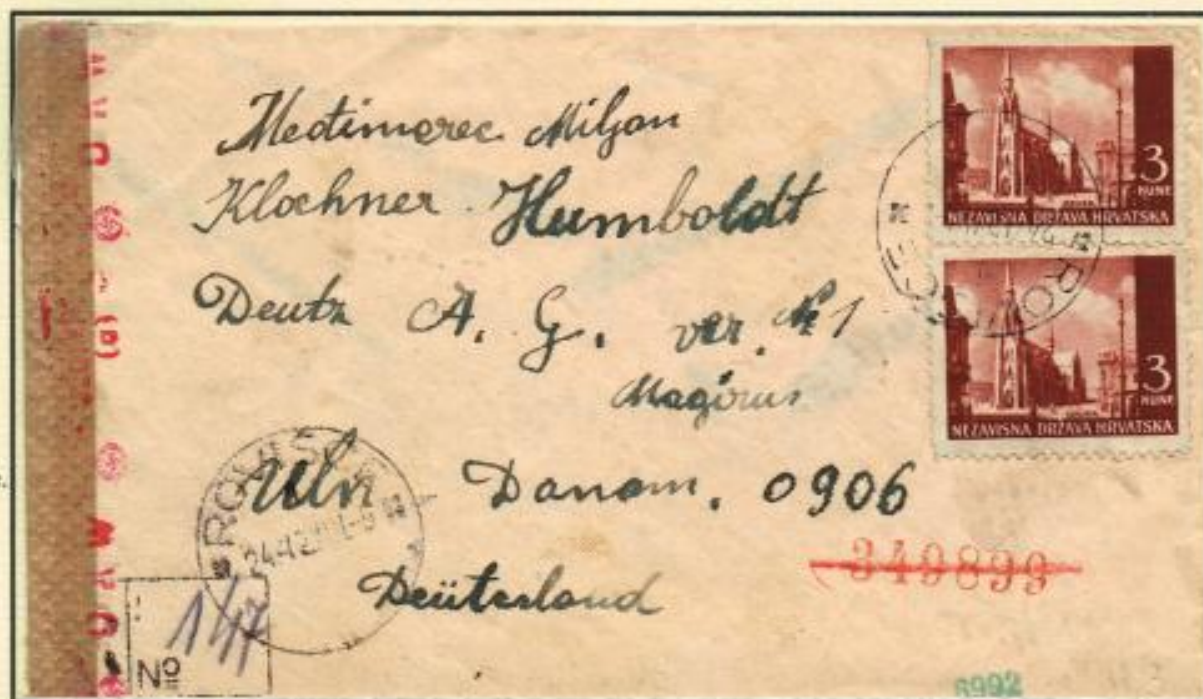 Medimorec Miljan
Klochner Humboldt
Deutz A. G. ver. № 1
Magirus
Ulm Donam. 0906
Deüterland
3
KUNE
NEZAVISNA DRŽAVA HRVATSKA
3
KUNE
NEZAVISNA DRŽAVA HRVATSKA
349899
147
№
6992